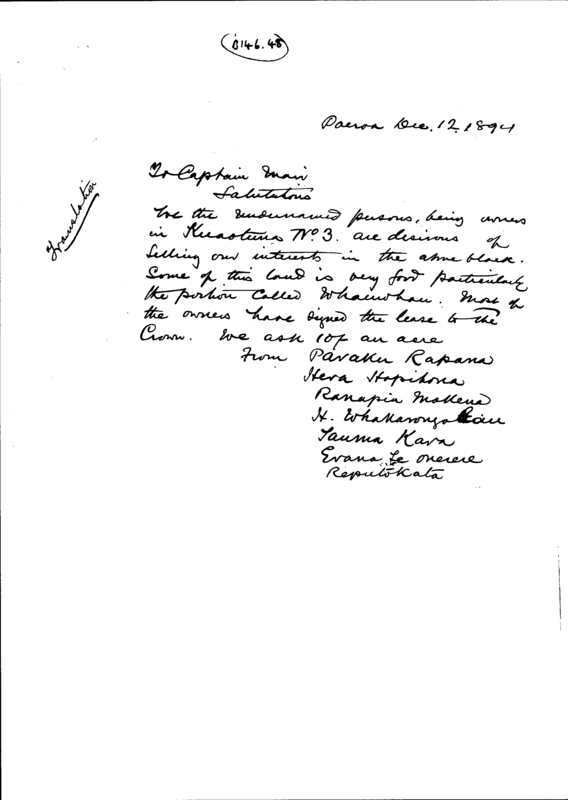 B146.48
Paeroa Dec. 12. 1894
Translation
To Captain Mair
Salutations
We the undernamed persons, being owners
in Kuaotunu No 3. are desirous of
selling our interests in the above block.
Some of this land is very good particularly
the portion called Whauwhau. Most of
the owners have signed the lease to the
Crown. We ask 10/- an acre
From Paraku Rapana
Hera Hopihona
Ranapia Mokena
H.
Tauma Kara
Erana Te Onerere